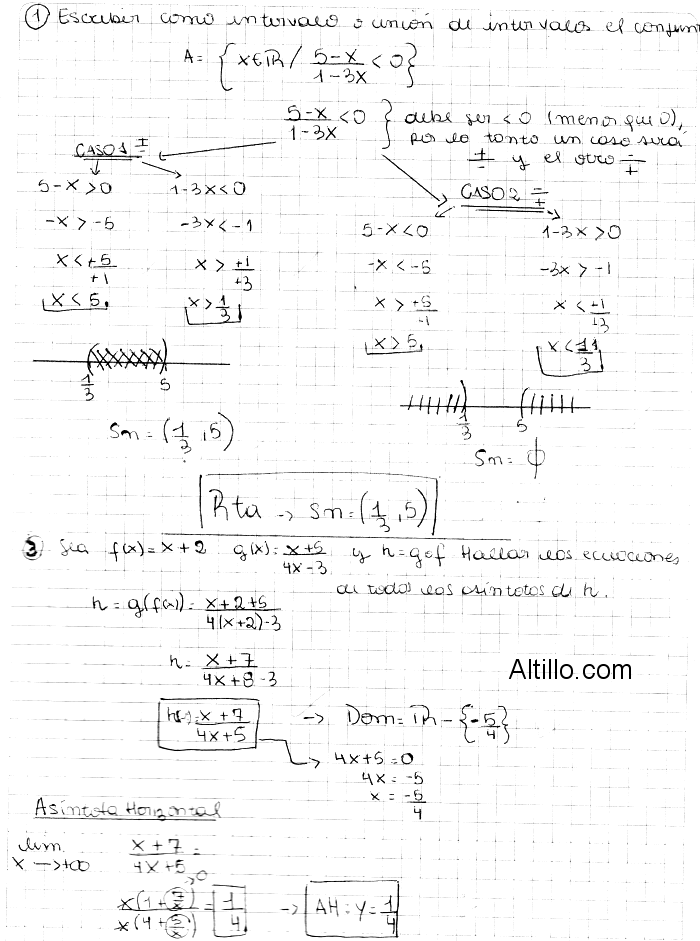 ① Escribir como intervalo o unión de intervalos el conjun
A = { x∈ℝ / 5-x/1-3x < 0 }
5-x/1-3x < 0 } debe ser < 0 (menor que 0),
por lo tanto un caso será
+/- y el otro -/+
CASO 1 +/-
5-x>0 1-3x<0
-x > -5 -3x < -1
x < +5/+1 x > +1/+3
x < 5. x > 1/3
1/3 5
Sn = (1/3, 5)
CASO 2 -/+
5-x<0 1-3x>0
-x < -5 -3x > -1
x > +5/-1 x < +1/+3
x > 5. x < 1/3
1/3 5
Sn = ϕ
Rta → Sn = (1/3, 5)
③ Sea f(x) = x+2 g(x) = x+5/4x-3 y h = gof Hallar las ecuaciones
de todas las asíntotas de h.
h = g(f(x)) = x+2+5/4(x+2)-3
h = x+7/4x+8-3
Altillo.com
h(x) = x+7/4x+5 → Dom = ℝ - {-5/4}
4x+5 = 0
4x = -5
x = -5/4
Asíntota Horizontal
lim x→+∞ x+7/4x+5 =
→0
x(1+7/x)/x(4+5/x) = 1/4 → AH: y = 1/4